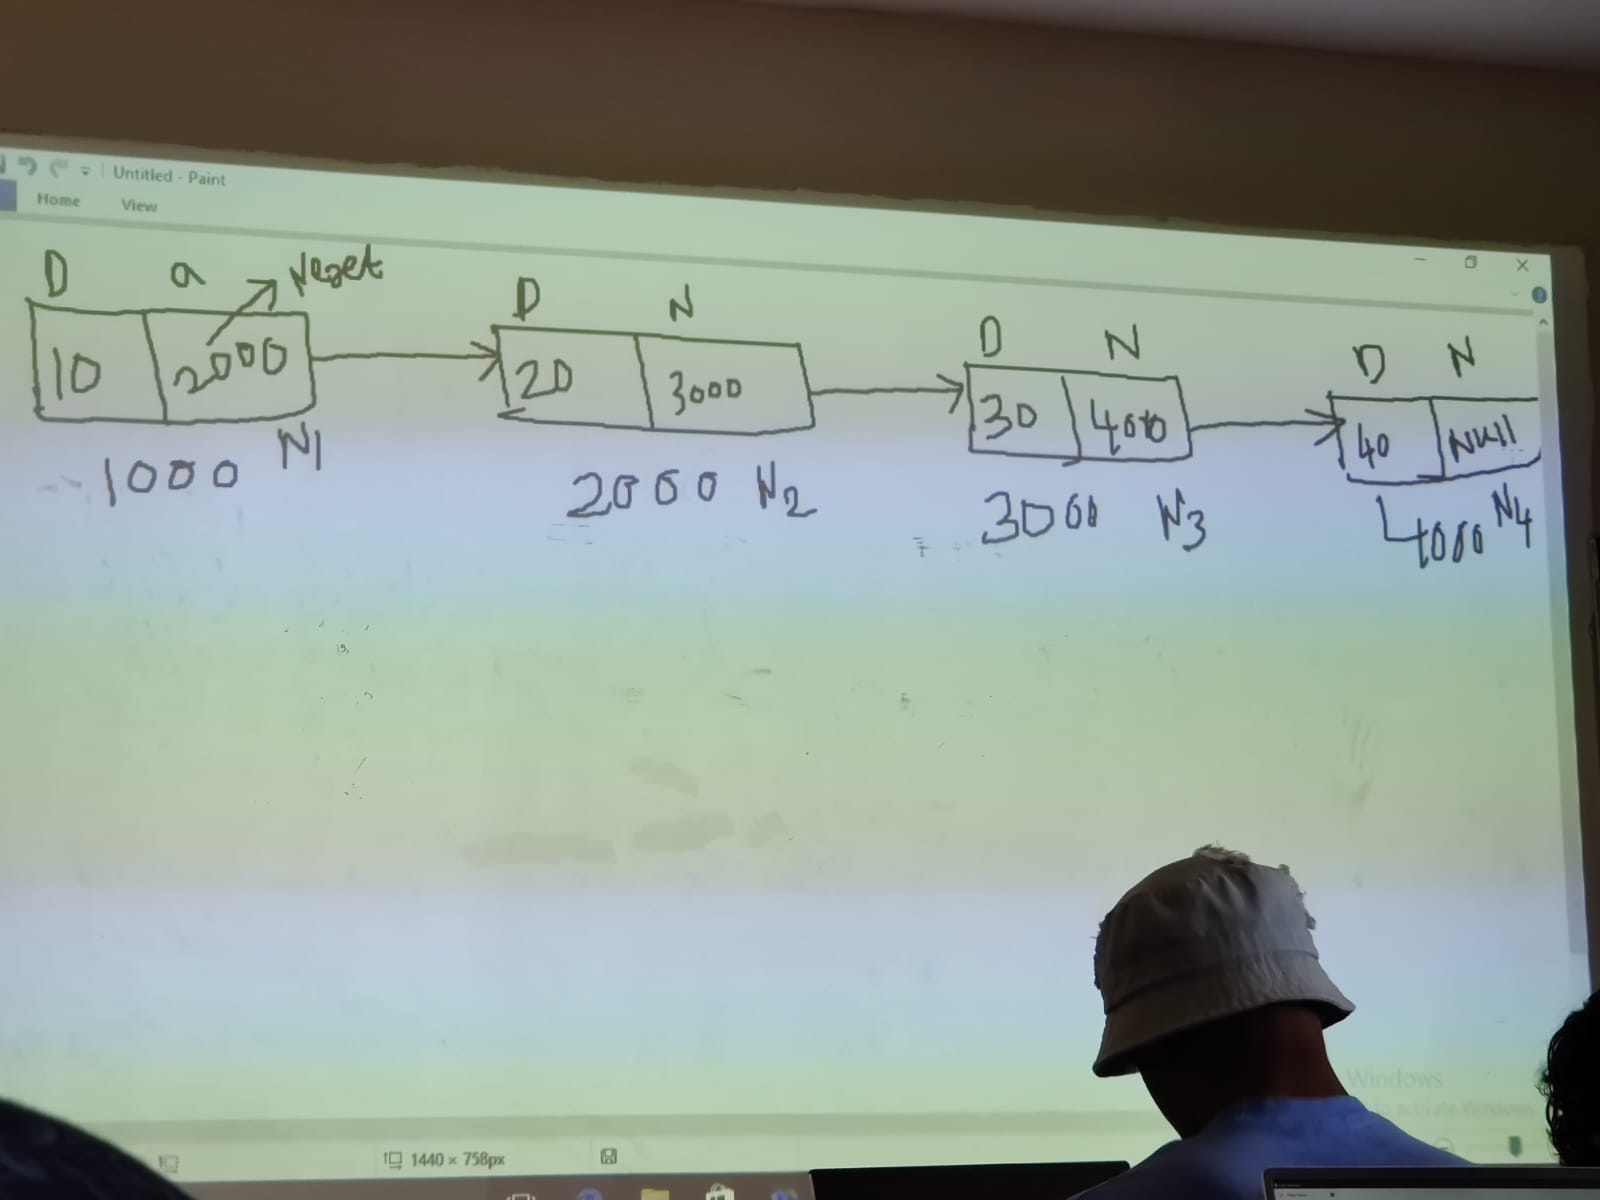 Untitled - Paint
Home View
D a Next
10 2000
1000 N1
D N
20 3000
2000 N2
D N
30 4000
3000 N3
D N
40 Null
4000 N4
Windows
to activate Windows
1440 × 758px